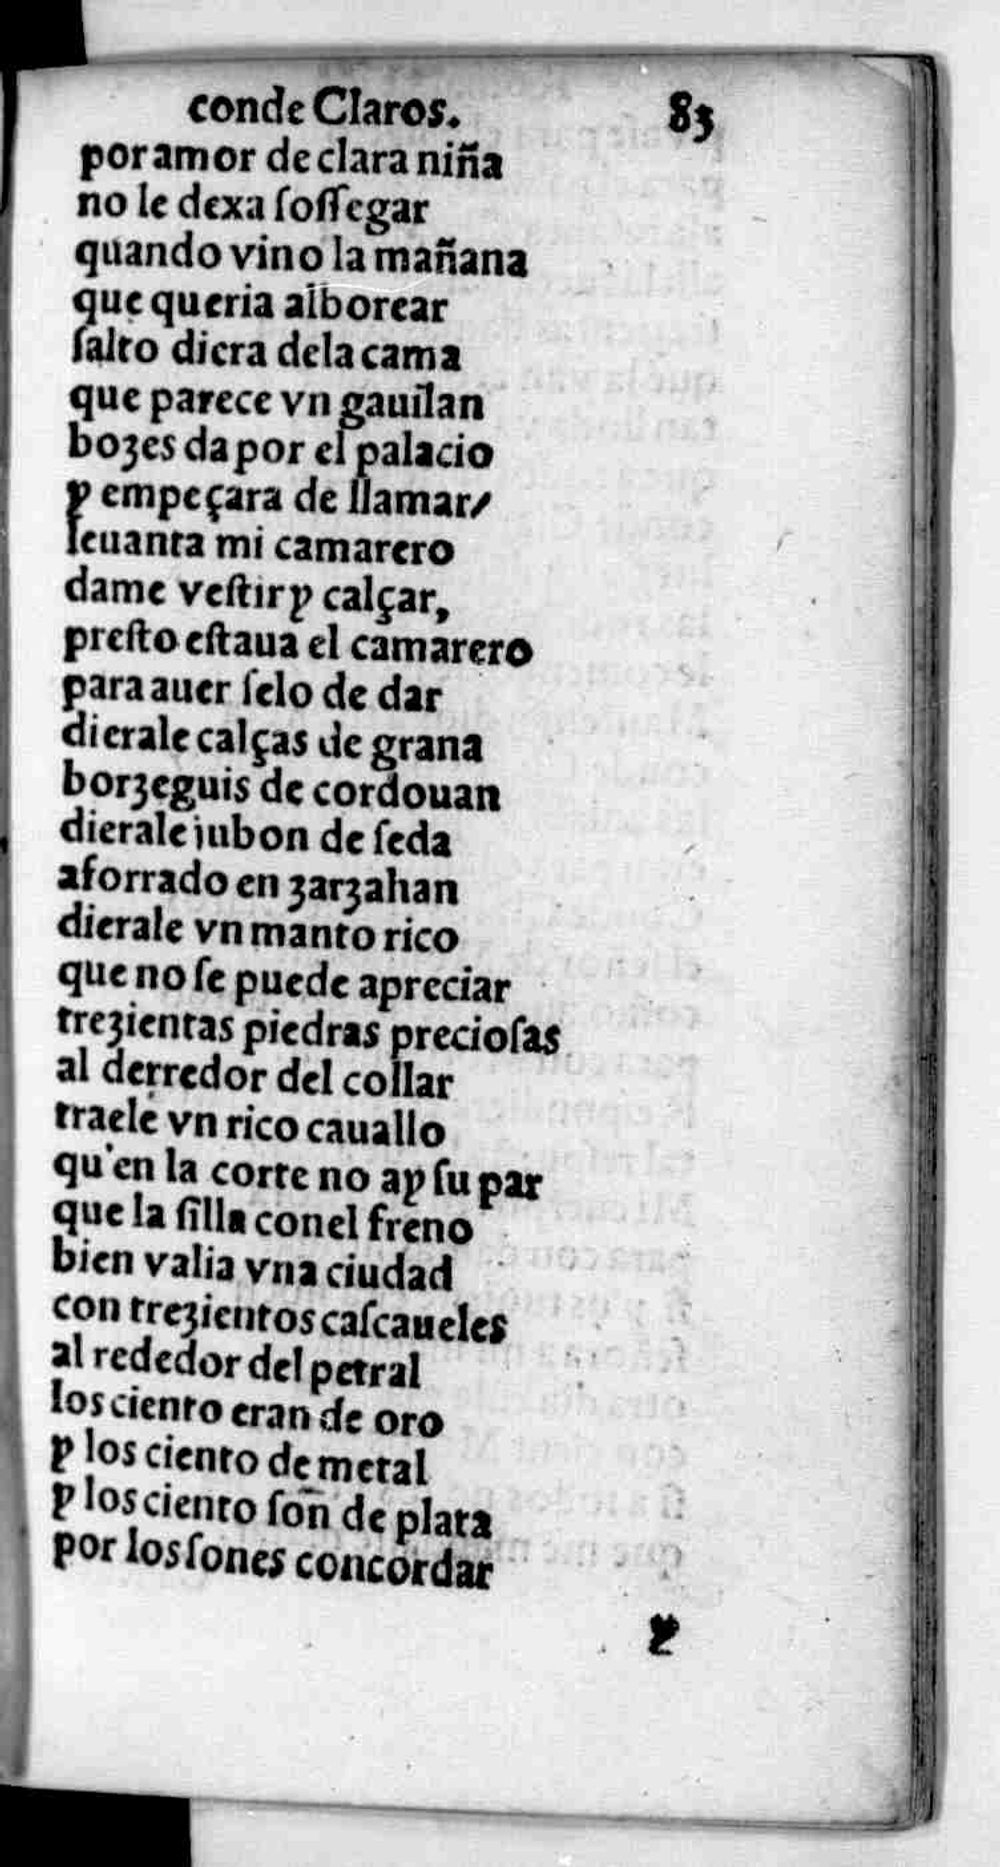 conde Claros. 83
por amor de clara niña
no le dexa ſoſſegar
quando vino la mañana
que queria alborear
ſalto diera dela cama
que parece vn gauilan
bozes da por el palacio
y empeçara de llamar/
leuanta mi camarero
dame veſtir y calçar,
preſto eſtaua el camarero
para auer ſelo de dar
dierale calças de grana
borzeguis de cordouan
dierale jubon de ſeda
aforrado en zarzahan
dierale vn manto rico
que no ſe puede apreciar
trezientas piedras precioſas
al derredor del collar
traele vn rico cauallo
qu'en la corte no ay ſu par
que la ſilla conel freno
bien valia vna ciudad
con trezientos caſcaueles
al rededor del petral
los ciento eran de oro
y los ciento de metal
y los ciento ſon de plata
por los ſones concordar
y